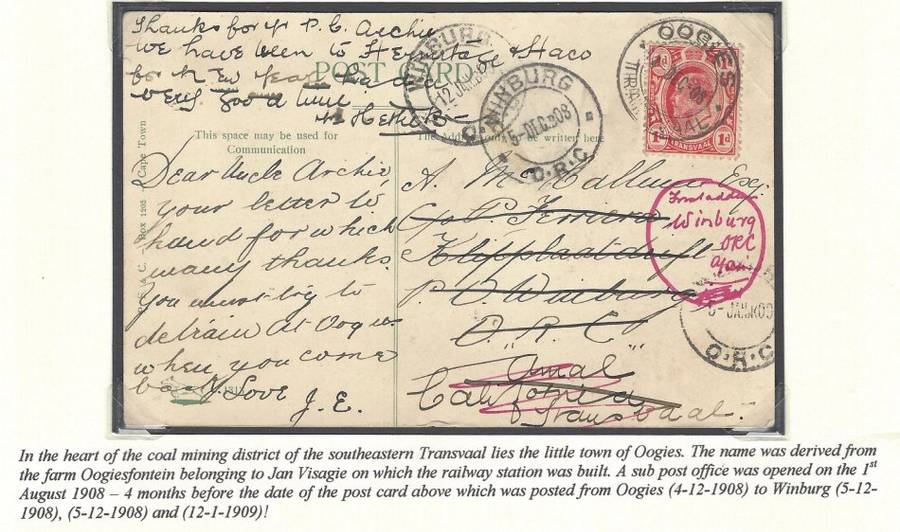 Thanks for yr P.C. Archie
We have been to & Haco
for New Year had a
very good time
Hettie
POST CARD
This space may be used for
Communication
The Address to be written here
Box 1205 Cape Town
Dear Uncle Archie,
your letter to
hand for which
many thanks.
You must try to
detrain at Oogies
when you come
back. Love
J.E.
WINBURG
12 JAN
O.
WINBURG
5-DEC 08
O.R.C.
OOGIES
DEC 08
1d
1d
TRANSVAAL
A. McCallum Esq.
c/o P. Ferreira
Klipplaatdrift
P.O. Winburg
O.R.C.
"Amal"
California
Transvaal.
Winburg
ORC
again
5-JAN 09
O.R.C
In the heart of the coal mining district of the southeastern Transvaal lies the little town of Oogies. The name was derived from
the farm Oogiesfontein belonging to Jan Visagie on which the railway station was built. A sub post office was opened on the 1st
August 1908 – 4 months before the date of the post card above which was posted from Oogies (4-12-1908) to Winburg (5-12-
1908), (5-12-1908) and (12-1-1909)!